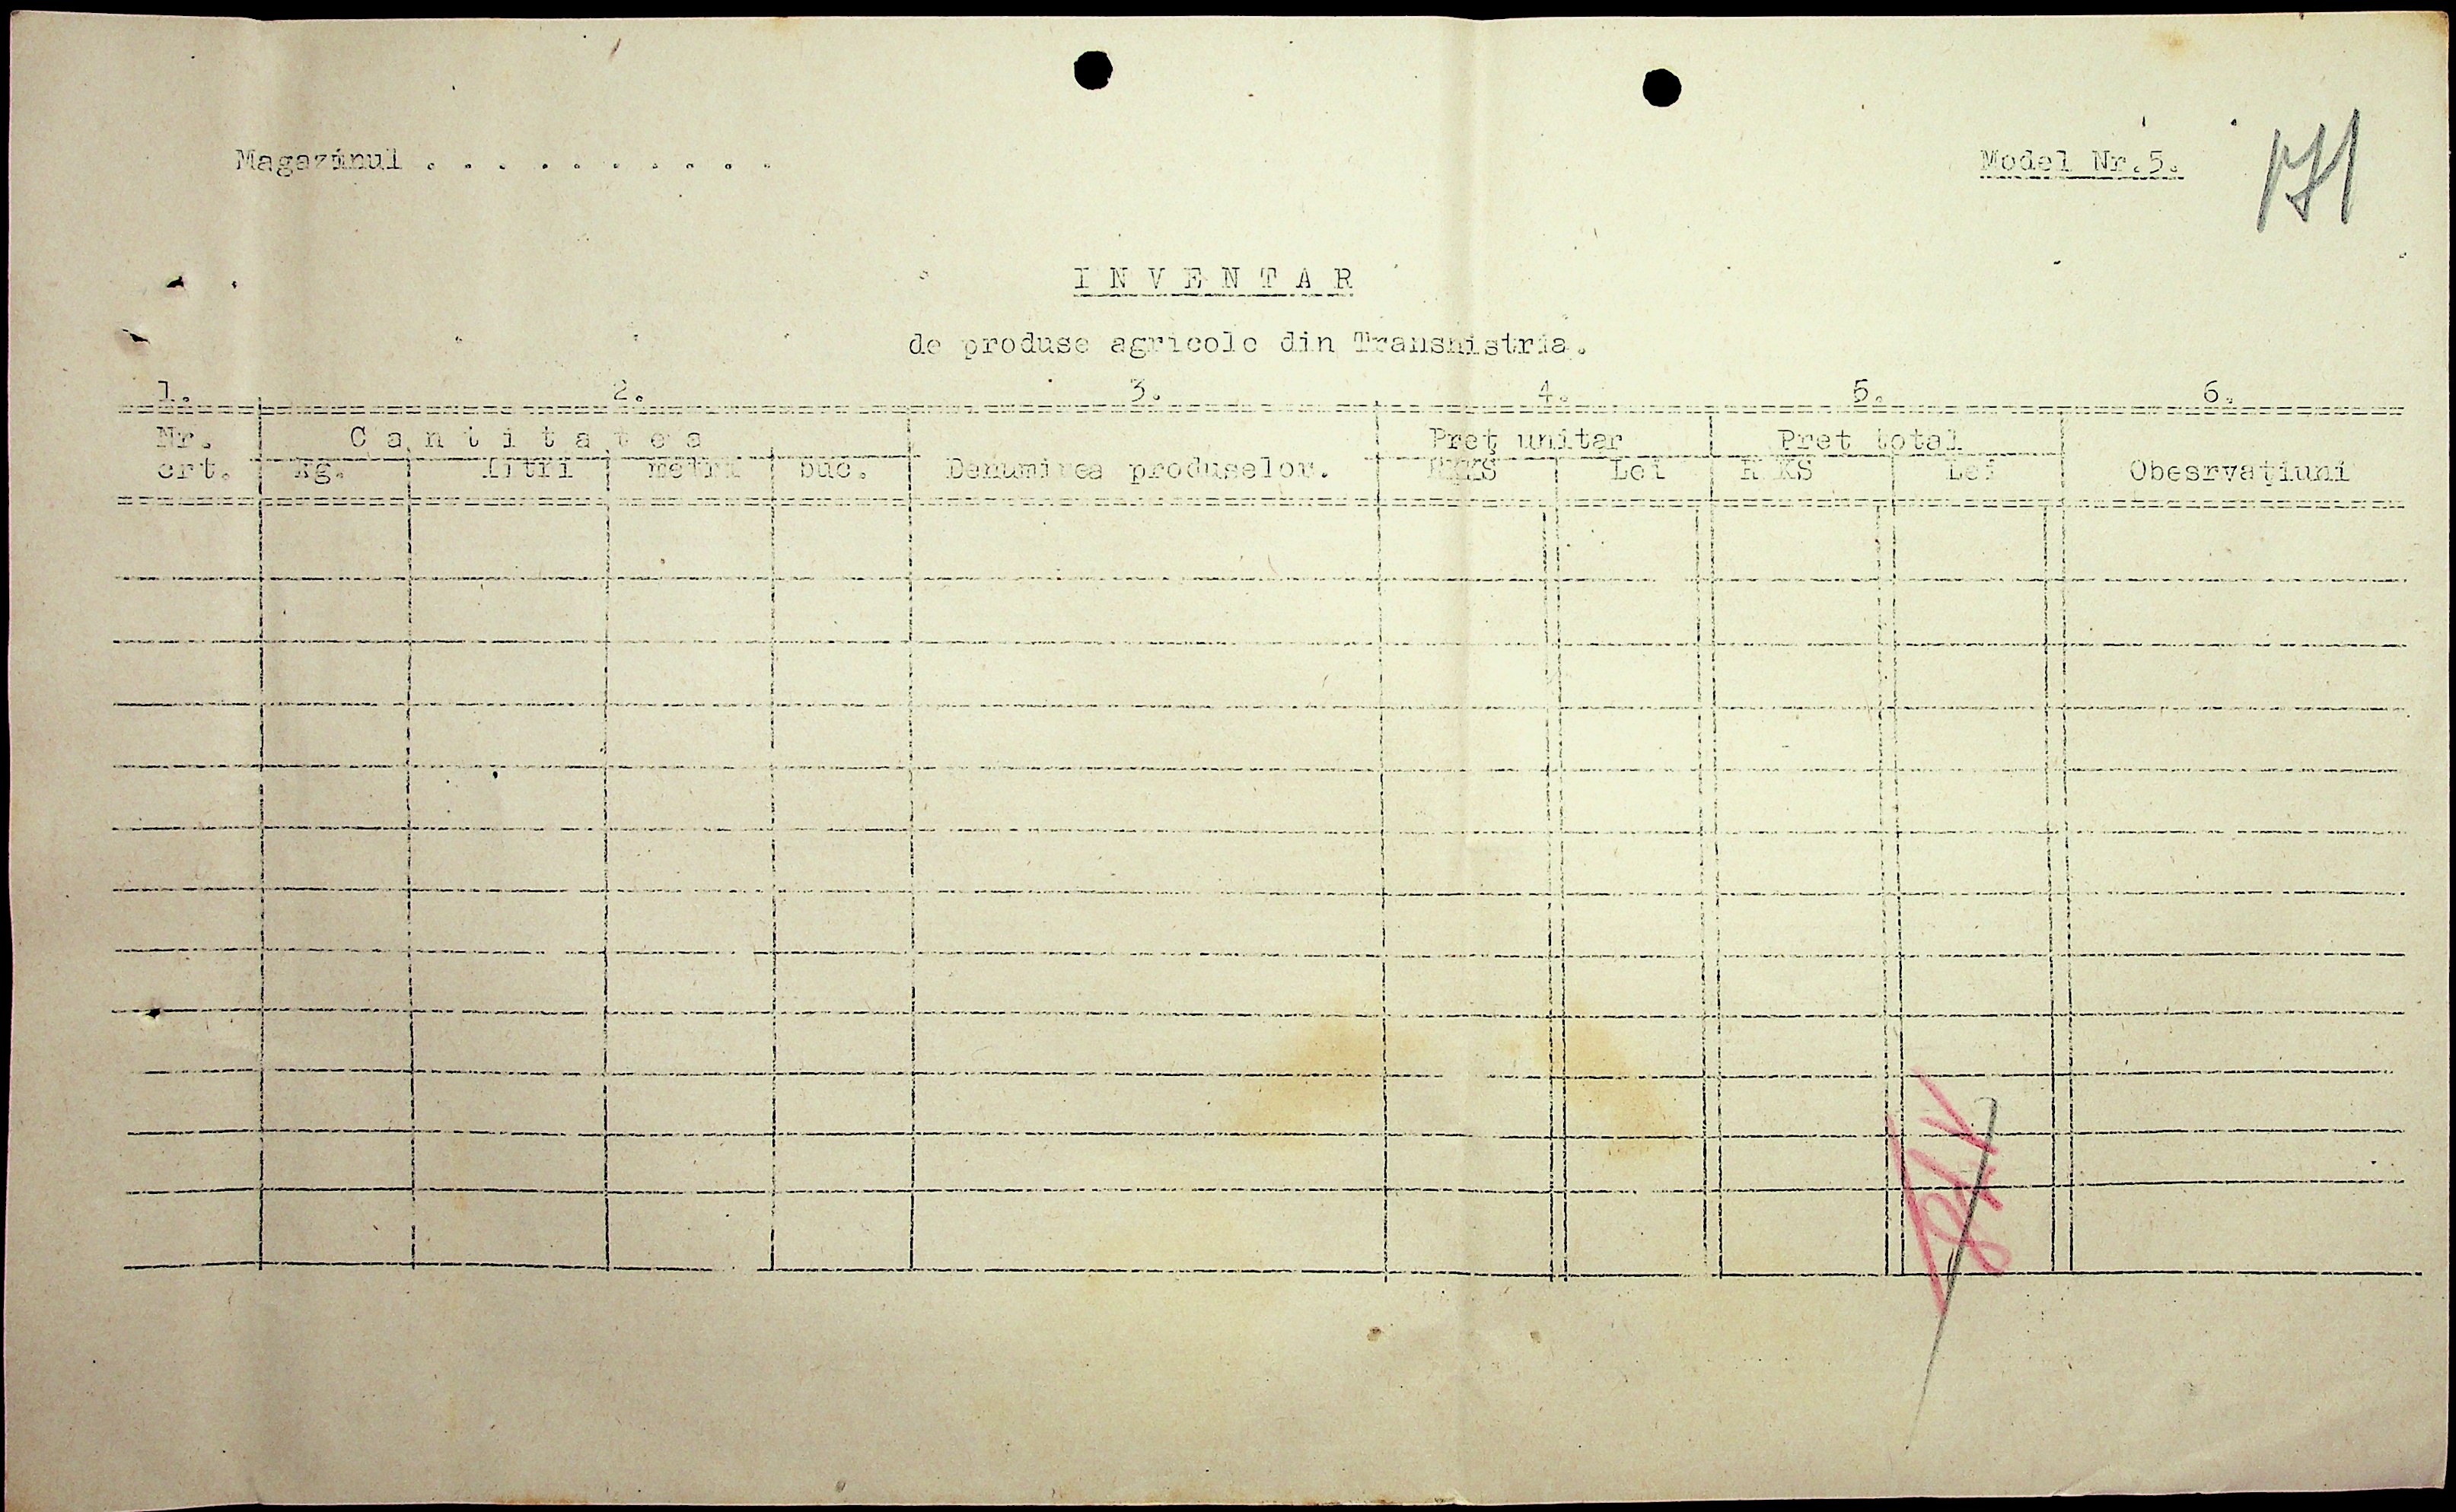 Magazinul . . . . . . . . . .
Model Nr.5.
171
I N V E N T A R
de produse agricole din Transnistria.
1. 2. 3. 4. 5. 6.
Nr. C a n t i t a t e a Preţ unitar Preţ total
crt. kg. litri metri buc. Denumirea produselor. RKKS Lei RKKS Lei Obesrvaţiuni